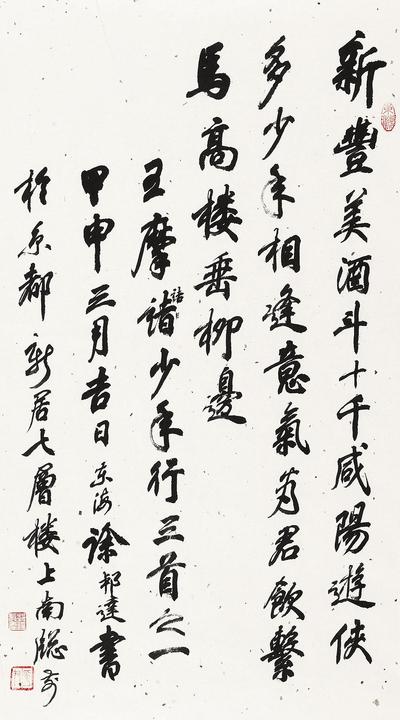 新豐美酒斗十千咸陽遊俠
多少年相逢意氣為君飲繫
馬高楼垂柳邊
王摩諸詰少年行三首之一
甲申三月吉日东海徐邦達書
於京都新居七層楼上南牕前